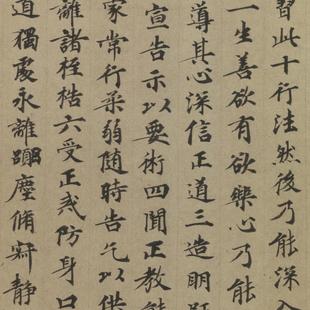 習此十行法然後乃能深入
一生善欲有欲樂心乃能
導其心深信正道三造明
宣告示以要術四聞正教能
家常行柔弱随時告乞以供
離諸桎梏六受正戒防身口
道獨處永離塵脩寂静